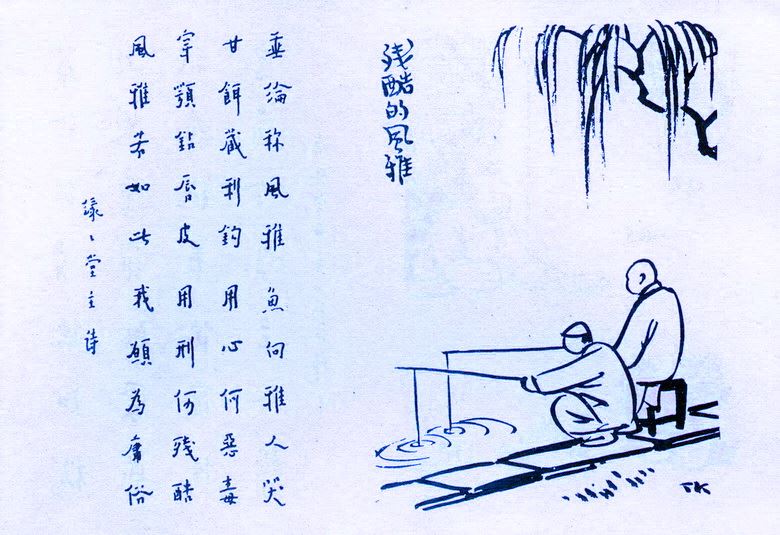 残酷的风雅
垂綸称風雅 魚向雅人哭
甘餌藏利鈎 用心何惡毒
穿顎鈷唇皮 用刑何殘酷
風雅若如此 我願為庸俗
緣〻堂主诗
TK